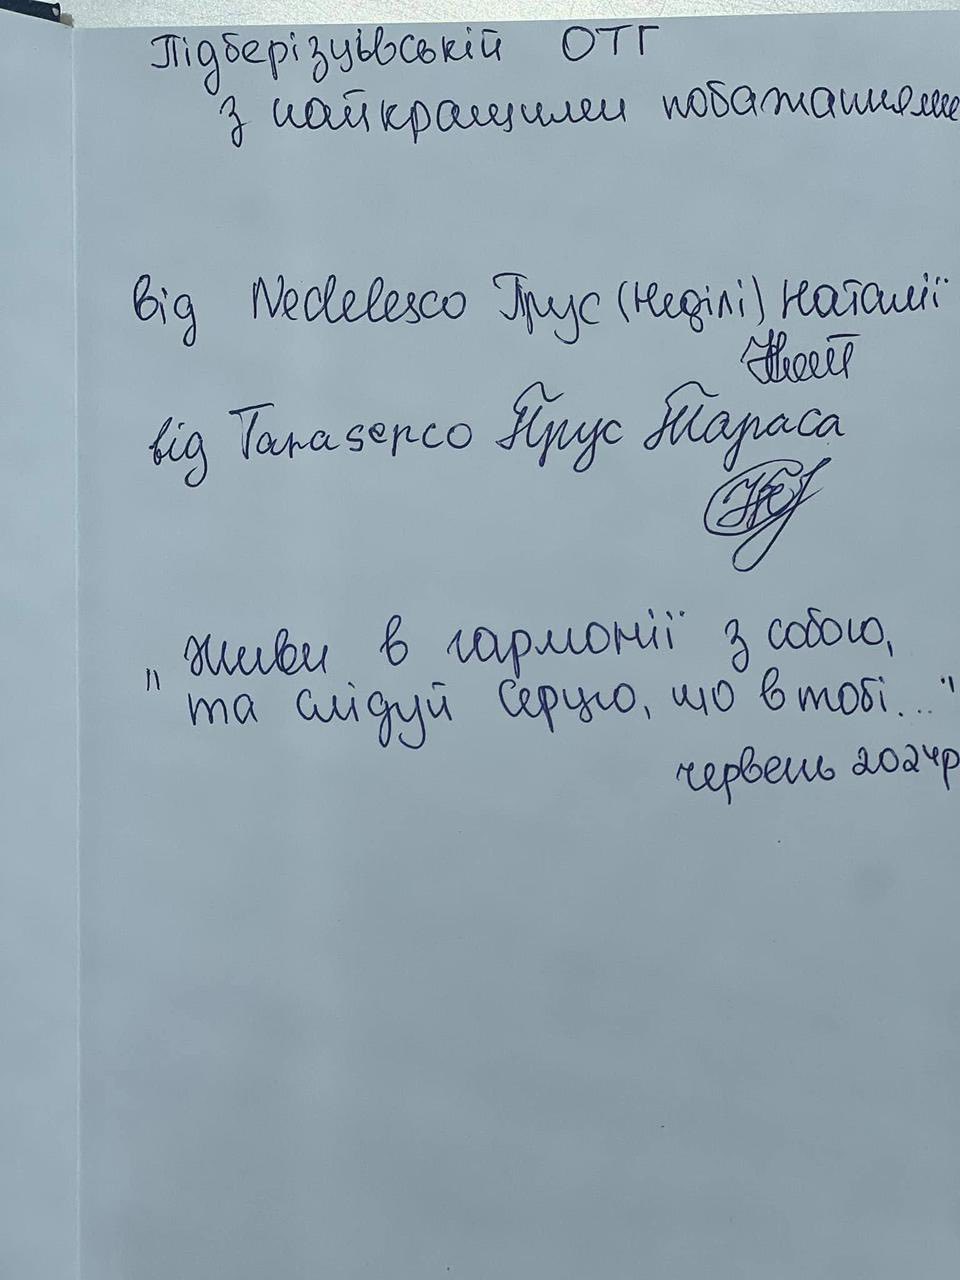 Підберізцівській ОТГ
з найкращими побажаннями
від Nedelesco Прус (Неділі) Наталії
від Tarasenco Прус Тараса
"Живи в гармонії з собою,
та слідуй серцю, що в тобі..."
червень 2024р